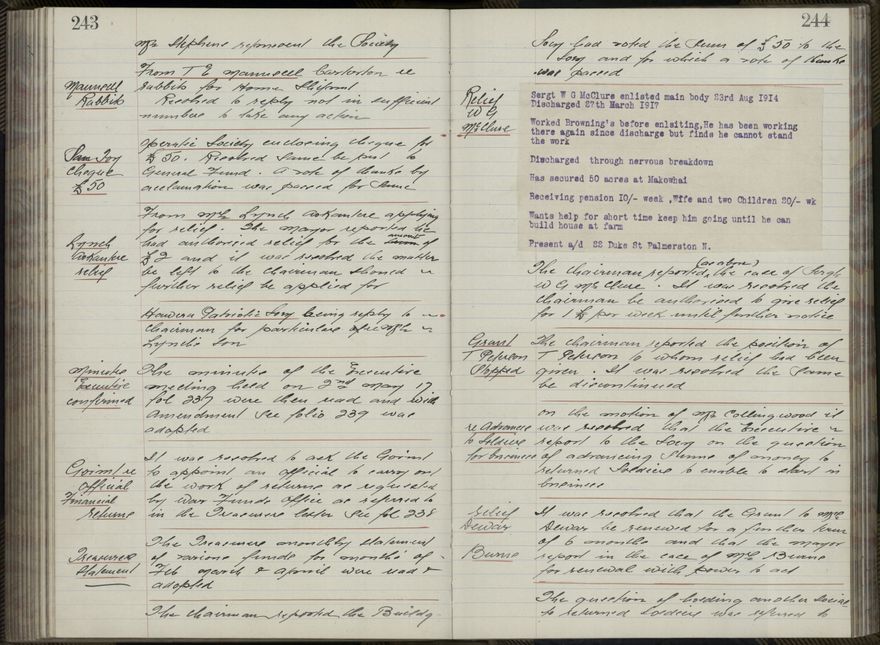 243
Mr Stephens represent the Society
Maunsell
Rabbits
From T E Maunsell Carterton re
rabbits for Home Shipment
Resolved to reply not in sufficient
numbers to take any action
Cheque
£50
Operatic Society enclosing cheque for
£50. Resolved same be paid to
General Fund. A vote of thanks by
acclamation was passed for same
Lynch
relief
From Mrs Lynch applying
for relief. The Mayor reported he
had authorised relief for the amount of
£2 and it was resolved the matter
be left to the Chairman should
further relief be applied for
Hawera Patriotic Socy being reply to
Chairman for particulars of Mrs
Lynch's son
Minutes
Executive
confirmed
The minutes of the Executive
meeting held on 2nd May 17
fol 237 were then read and with
amendment see folio 239 was
adopted
re
Official
Financial
returns
It was resolved to ask the
to appoint an official to carry out
the work of returns as requested
by War Funds Office as referred to
in the Treasurers letter see fol 238
Treasurers
Statement
The Treasurers monthly statement
of various funds for months of
Feb March & April were read &
adopted
The Chairman reported the Buildg
244
Socy had voted the sum of £50 to the
Socy and for which a vote of thanks
was passed
Relief
W G
McClure
Sergt W G McClure enlisted main body 23rd Aug 1914
Discharged 27th March 1917
Worked Browning's before enlsiting,He has been working
there again since discharge but finds he cannot stand
the work
Discharged through nervous breakdown
Has secured 50 acres at Makowhai
Receiving pension 10/- week ,Wife and two Children 20/- wk
Wants help for short time keep him going until he can
build house at farm
Present a/d 22 Duke St Palmerston N.
(as above)
The Chairman reported the case of Sergt
W G McClure. It was resolved the
Chairman be authorised to give relief
for 1 £ per week until further notice
Grant
T Peterson
Stopped
The Chairman reported the position of
T Peterson to whom relief had been
given. It was resolved the same
be discontinued
re Advances
to Soldiers
for business
On the motion of Mr Collingwood it
was resolved that the Executive
report to the Socy on the question
of advancing sums of money to
returned Soldiers to enable to start in
business
relief
Dewar
Burns
It was resolved that the Grant to Mrs
Dewar be renewed for a further term
of 6 months and that the Mayor
report in the case of Mrs Burns
for renewal with power to act
The question of holding another Social
to returned Soldiers was referred to